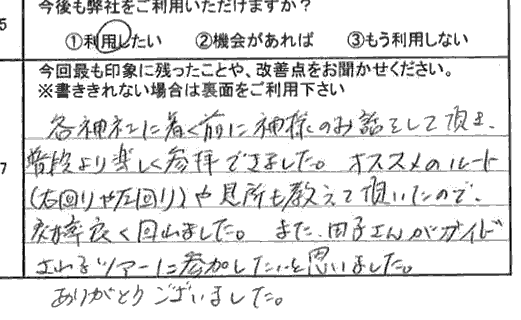 今後も弊社をご利用いただけますか？
5
①利用したい ②機会があれば ③もう利用しない
今回最も印象に残ったことや、改善点をお聞かせください。
※書ききれない場合は裏面をご利用下さい
各神社に着く前に神様のお話をして頂き、
7
普段より楽しく参拝できました。オススメのルート
(右回りや左回り)や見所も教えて頂いたので、
効率良く回れました。また、田子さんがガイド
されるツアーに参加したいと思いました。
ありがとうございました。